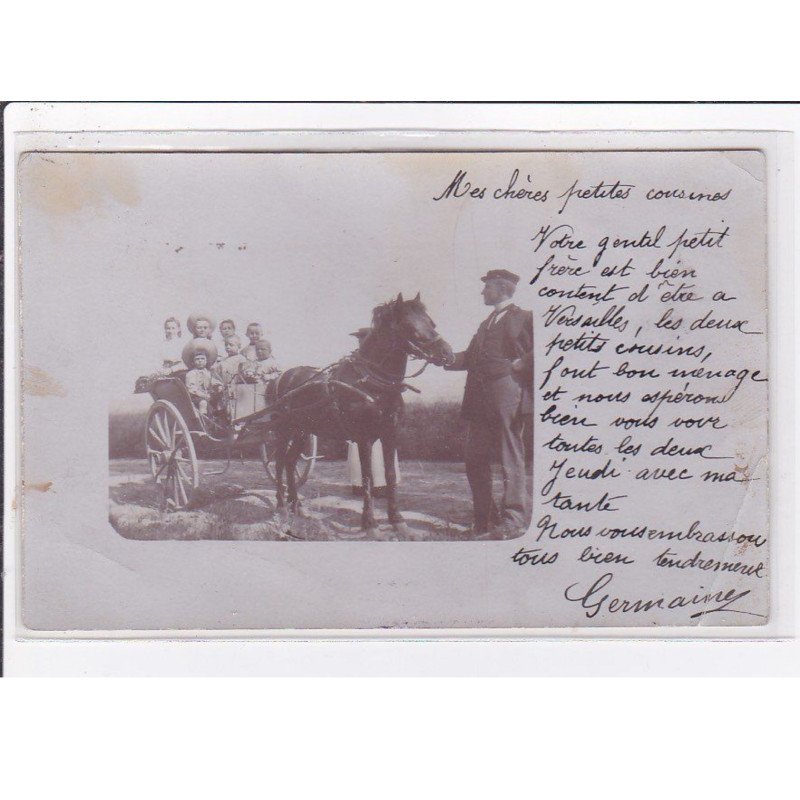 Mes chères petites cousines
Votre gentil petit
frère est bien
content d'être a
Versailles, les deux
petits cousins,
font bon menage
et nous espérons
bien vous voir
toutes les deux
Jeudi avec ma
tante
Nous vous embrassons
tous bien tendrement
Germaine